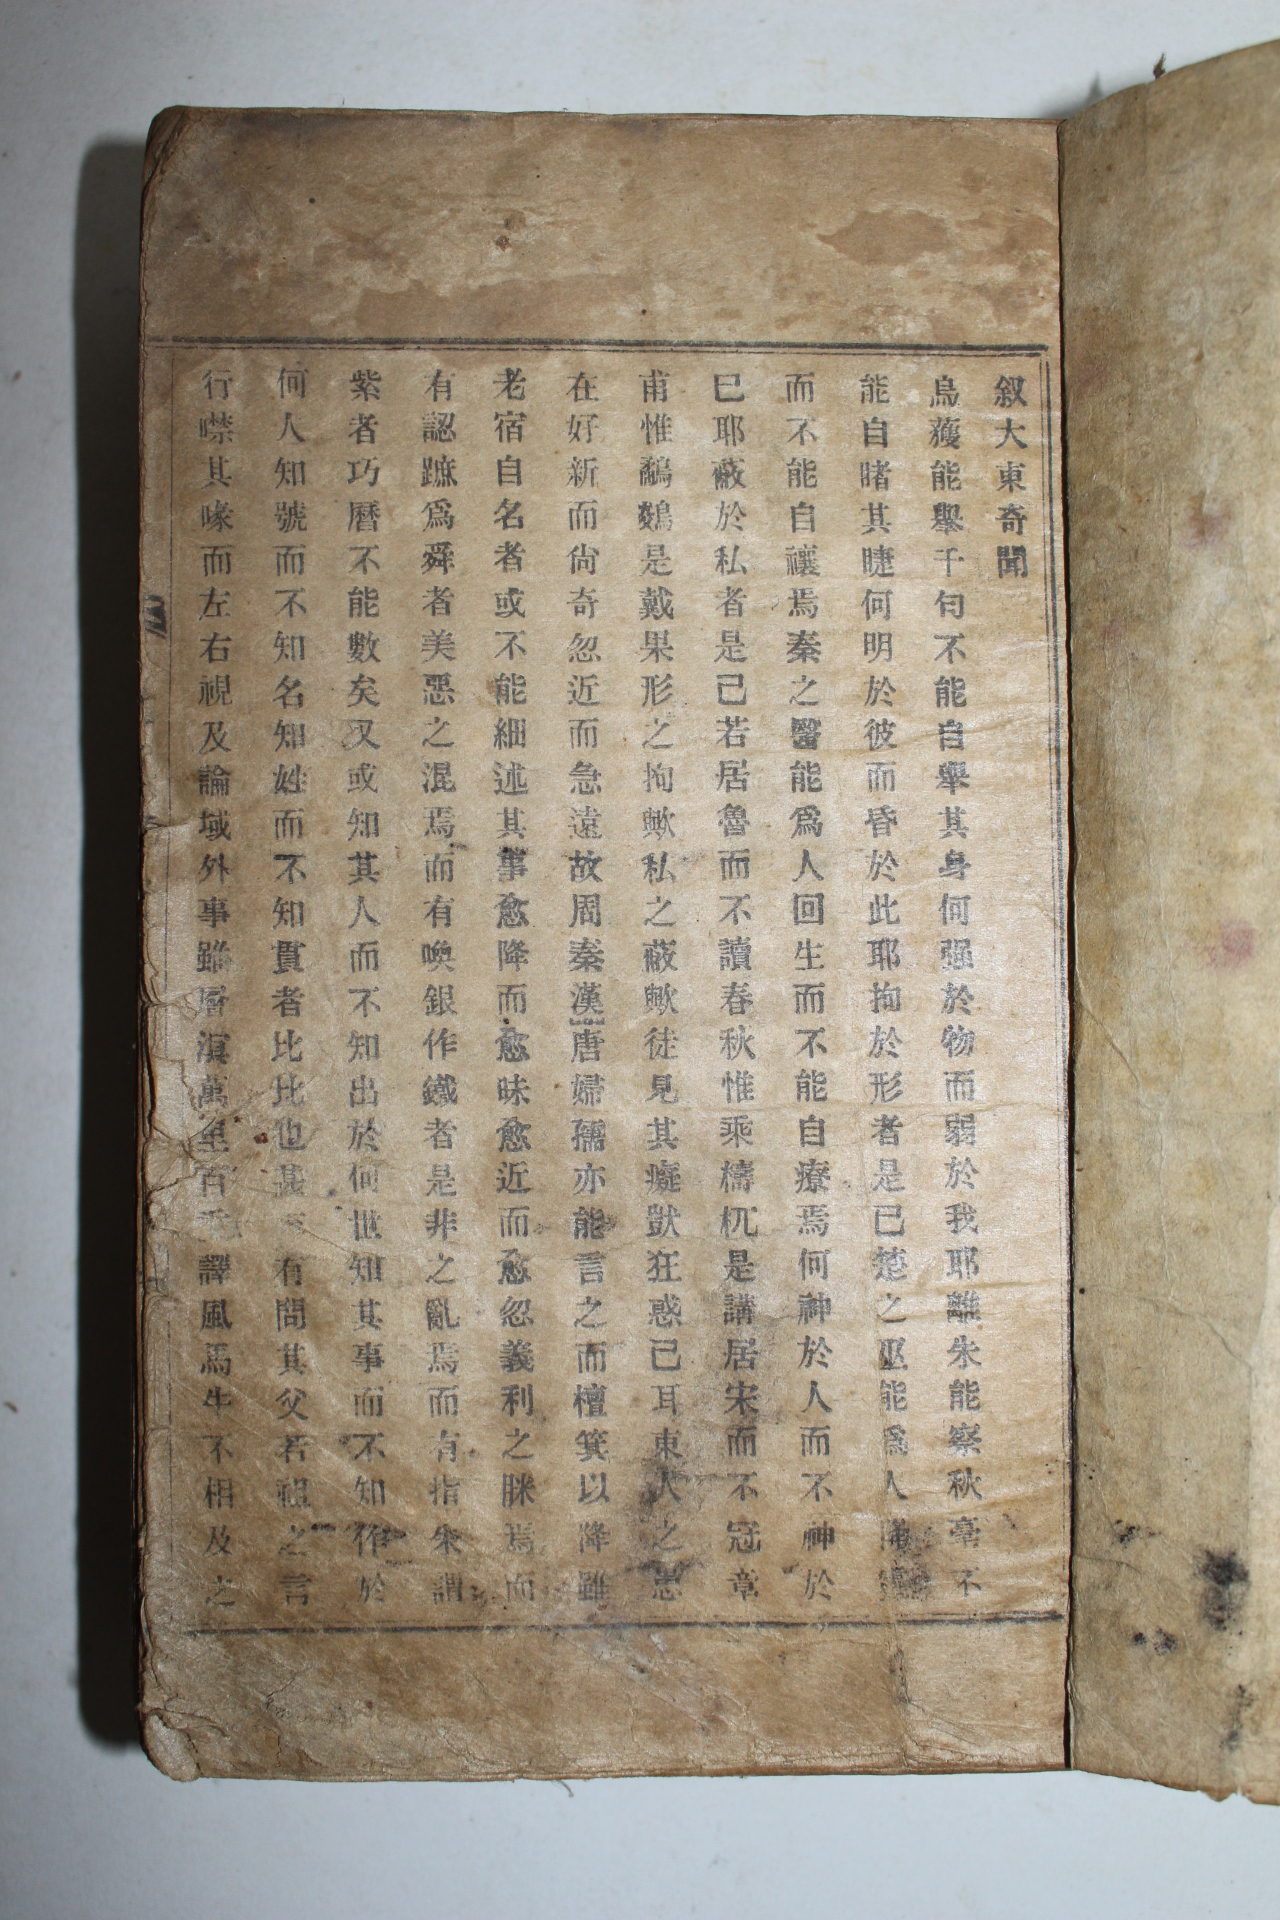 叙大東奇聞
烏獲能擧千勻不能自擧其身何强於物而弱於我耶離朱能察秋毫不
能自睹其睫何明於彼而昏於此耶拘於形者是已楚之巫能爲人降
而不能自禳焉秦之醫能爲人回生而不能自療焉何神於人而不神於
已耶蔽於私者是已若居魯而不讀春秋惟乘檮杌是講居宋而不冠章
甫惟鷸鷄是戴果形之拘歟私之蔽歟徒見其癡獃狂惑已耳東人之患
在好新而尙奇忽近而急遠故周秦漢唐婦孺亦能言之而檀箕以降雖
老宿自名者或不能細述其事愈降而愈昧愈近而愈忽義利之眯焉而
有認蹠爲舜者美惡之混焉而有喚銀作鐵者是非之亂焉而有指朱謂
紫者巧曆不能數矣又或知其人而不知出於何世知其事而不知作於
何人知號而不知名知姓而不知貫者比比也甚至有問其父若祖之言
行噤其喙而左右視及論域外事雖層溟萬里百重譯風馬牛不相及之